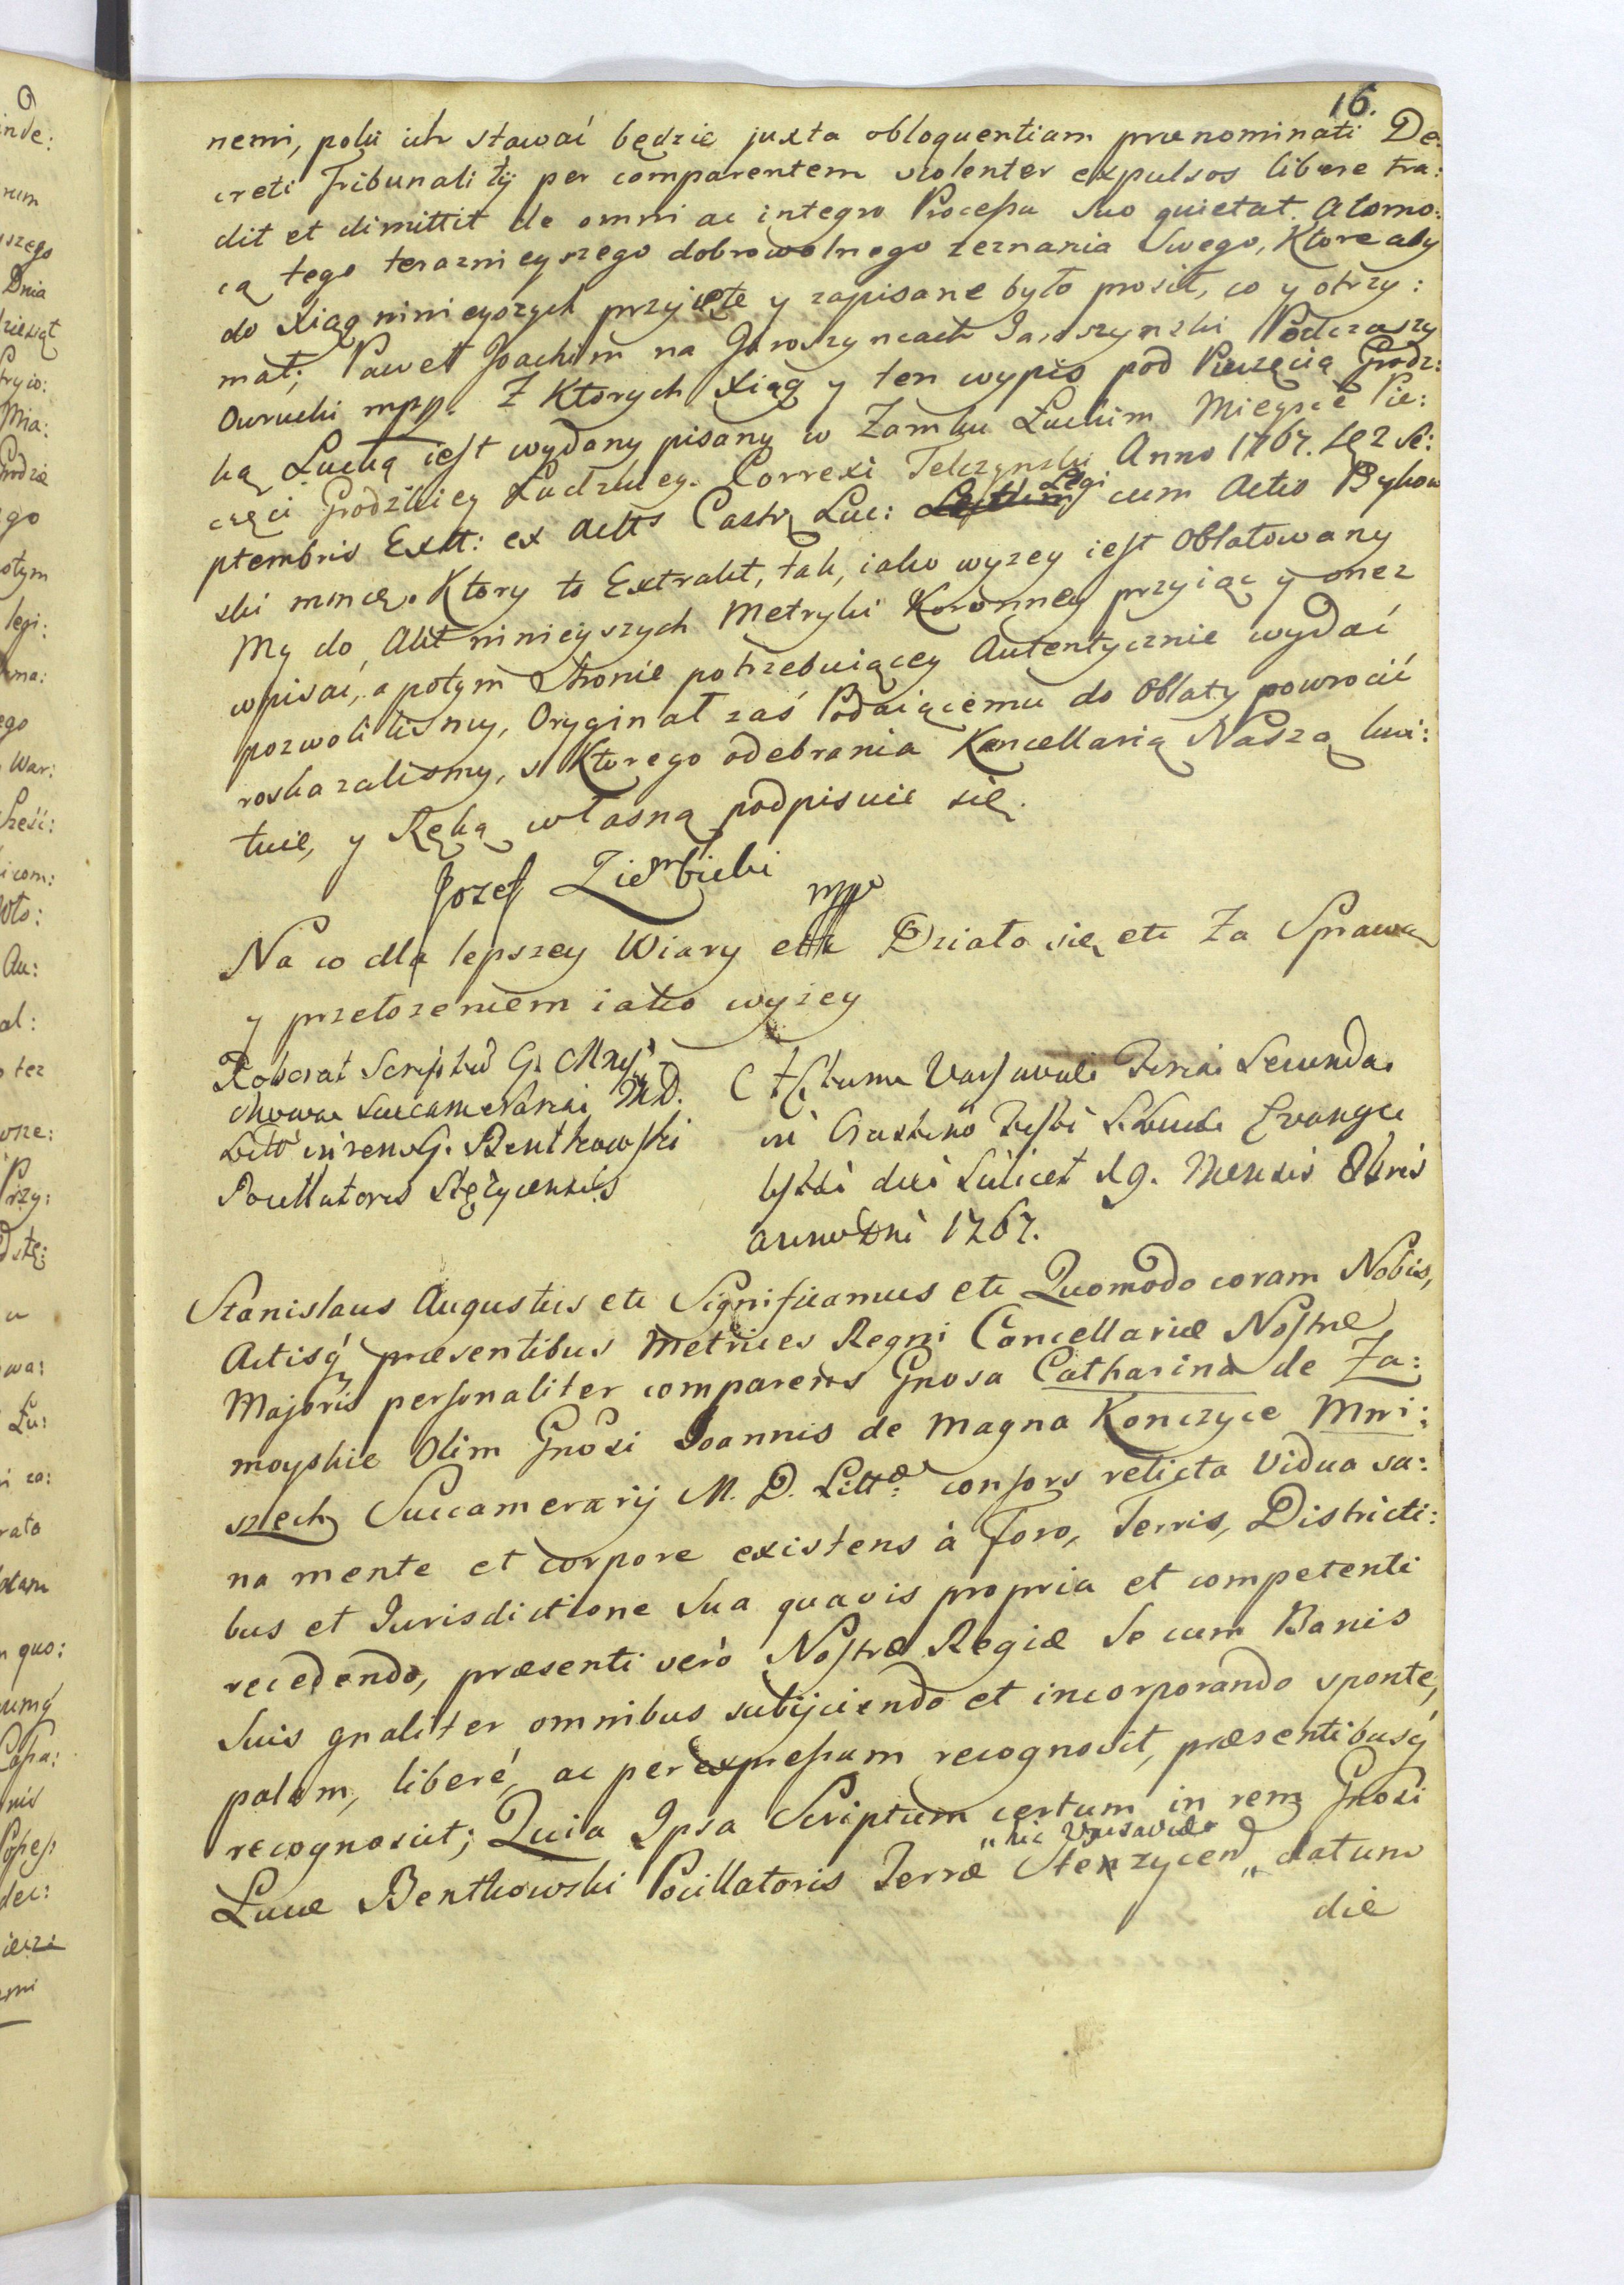 16.
nemi, poki ich stawać będzie juxta obloquentiam prænominati De:
creti Tribunalitij per comparentem violenter expulsos libere tra:
dit et dimittit de omni ac integro Processu suo quietat. A tomo:
cą tego teraznieyszego dobrowolnego zeznania Swego, Ktore aby
do Xiąg ninieyszych przyięte y zapisane było prosił, co y otrzy:
mał; Paweł Joachim na Jaroszyncach Jaroszynski Podczaszy
Owrucki mpp. Z Ktorych Xiąg y ten wypis pod Pieczęcią Grodz:
ką Łucką iest wydany pisany w Zamku Łuckim Mieysce Pie:
częci Grodzkiey Łuckiey. Correxi Telczynski Anno 1767. d 2 Se:
ptembris Extt: ex Actis Castr Luc: Legi cum Actis Bykow
ski mmcą. Ktory to Extrakt, tak, iako wyzey iest Oblatowany
My do Akt ninieyszych Metryki Koronney przyiąc y onez
wpisać, a potym Stronie potrzebuiącey Autentycznie wydać
pozwolilismy, Oryginał zaś Podaiącemu do Oblaty powrocić
roskazalismy, z Ktorego odebrania Kancellarią Naszą kwi:
tuie, y Ręką własną podpisuie się.
Jozef Ziembicki
mpp
Na co dla lepszey Wiary etc Działo się etc Za Sprawą
y przełozeniem iako wyzey
Roborat Scriptū G. Mnysz
chowa Succamerariai M.D.
Litt in rem G. Bentkowski
Pocillatoris Stężycensis
Actum Varsaviæ Feria Secunda
in Crastino Festi S. Lucæ Evange
lystæ die Scilicet 19. Mensis 8bris
anno Dni 1767.
Stanislaus Augustus etc Significamus etc Quomodo coram Nobis,
Actisq præsentibus Metrices Regni Cancellariæ Nostræ
Majoris personaliter comparens Gnosa Catharina de Za:
moyskie Olim Gnosi Joannis de Magna Konczyce Mni:
szech Succamerarij M. D. Litt: consors relicta Vidua sa:
na mente et corpore existens à Foro, Terris, Districti:
bus et Jurisdictione Sua quavis propria et competenti
recedendo, præsenti verò Nostræ Regiæ Se cum Bonis
Suis gnaliter omnibus subijciendo et incorporando sponte,
palam, liberé, ac per expressum recognovit, præsentibusq
recognoscit; Quia Ipsa Scriptum certum in rem Gnosi
„hic Varsaviæ
Lucæ Bentkowski Pocillatoris Terræ Stenzycen „ datum
die